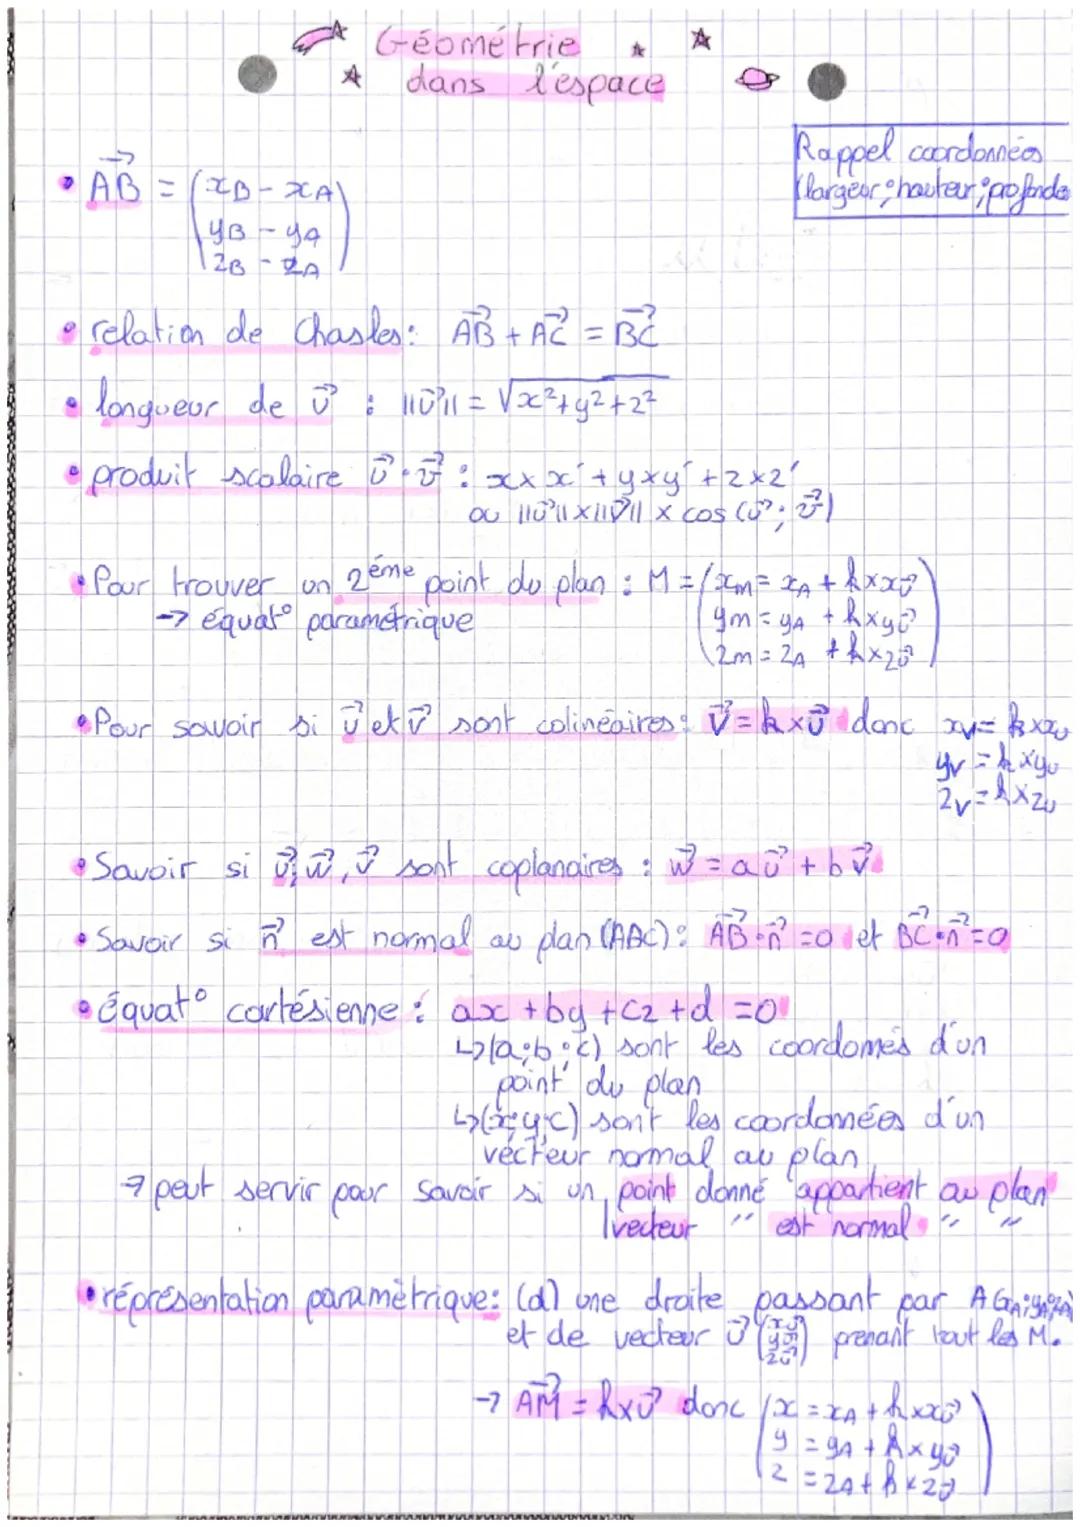 Géométrie
dans l'espace
Rappel coordonnées
(largeur; hauteur; profonde
• AB→ = (xB - xA
yB - yA
zB - zA)
• relation de Chasles: AB→ + AC→ = BC→
• longueur de u→ : ||u→|| = √x²+y²+z²
• produit scalaire u→·v→ : x×x' + y×y' + z×z'
ou ||u→||×||v→|| × cos (u→; v→)
• Pour trouver un 2ème point du plan : M = (xm = xA + k×xu→
→ équat° paramétrique ym = yA + k×yu→
zm = zA + k×zu→)
• Pour savoir si u→ et v→ sont colinéaires: v→ = k×u→ donc xv = k×xu
yv = k×yu
zv = k×zu
• Savoir si u→, w→, v→ sont coplanaires : w→ = au→ + bv→
• Savoir si n→ est normal au plan (ABC): AB→·n→ =0 et BC→·n→=0
• équat° cartésienne : ax + by + cz + d = 0
↳(a;b;c) sont les coordomés d'un
point du plan
↳(x;y;c) sont les coordomées d'un
vecteur normal au plan
→ peut servir pour savoir si un point donné appartient au plan
vecteur " est normal " "
• réprésentation paramètrique: (d) une droite passant par A(xA;yA;zA)
et de vecteur u→ (xu→ yu→ zu→) prenant tout les M.
→ AM→ = k×u→ donc (x = xA + k×xu→
y = yA + k×yu→
z = zA + k×zu→)